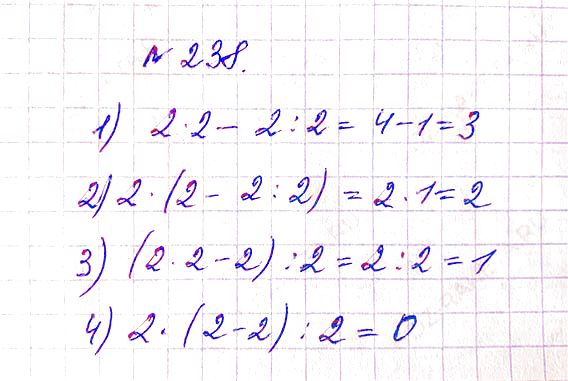 № 238.
1) 2·2 - 2:2 = 4-1=3
2) 2·(2 - 2:2) = 2·1=2
3) (2·2-2):2=2:2=1
4) 2·(2-2):2=0